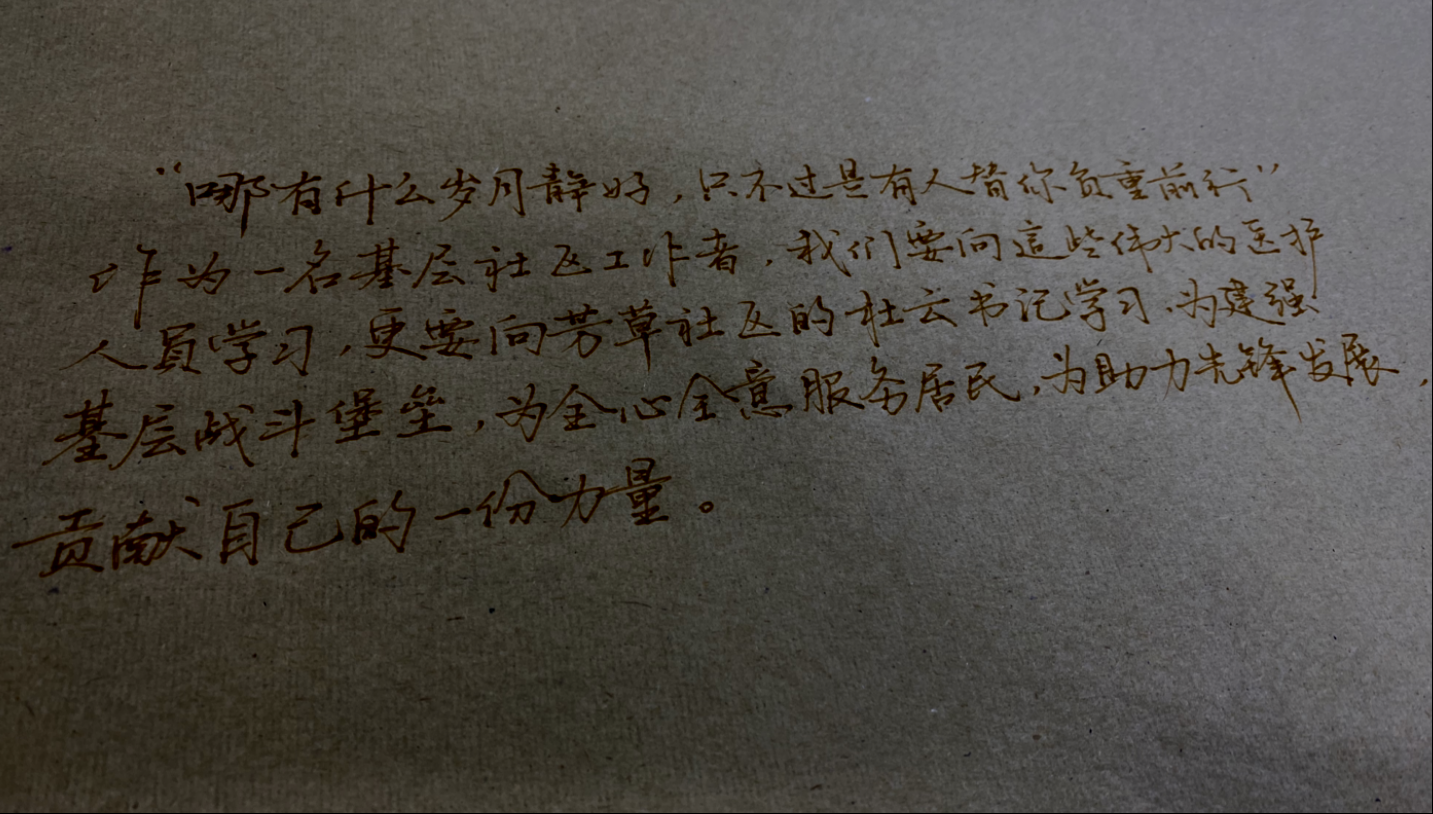 “哪有什么岁月静好，只不过是有人替你负重前行”
作为一名基层社区工作者，我们要向這些伟大的医护
人員学习，更要向芳草社区的杜云书记学习、为建强
基层战斗堡垒，为全心全意服务居民，为助力先锋发展，
贡献自己的一份力量。